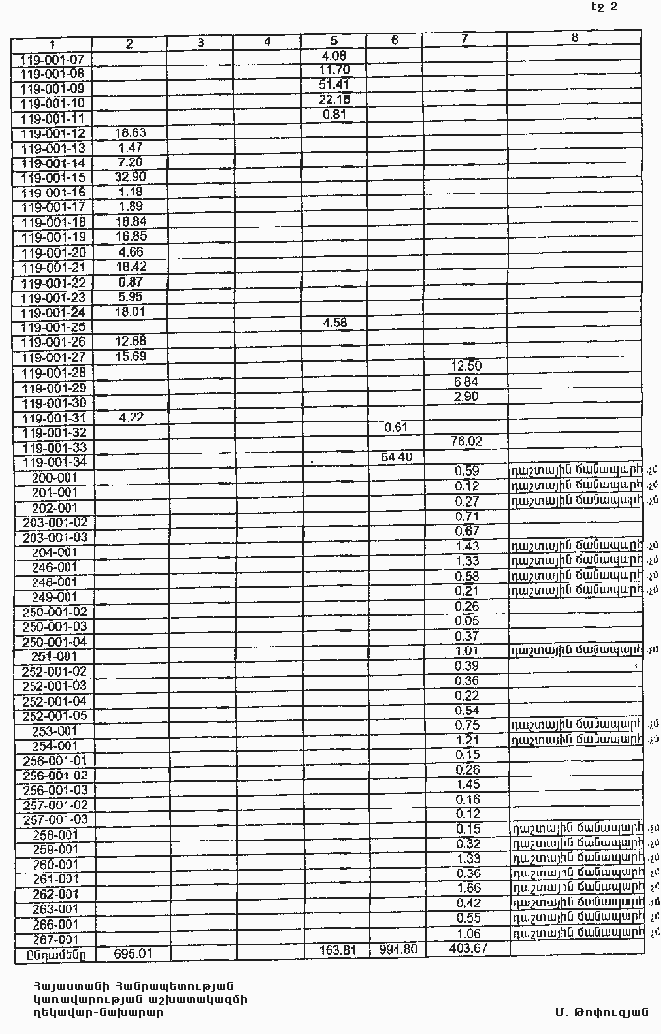 էջ 2
1 2 3 4 5 6 7 8
119-001-07 4.08
119-001-08 11.70
119-001-09 51.41
119-001-10 22.18
119-001-11 0.81
119-001-12 18.63
119-001-13 1.47
119-001-14 7.20
119-001-15 32.90
119-001-16 1.18
119-001-17 1.89
119-001-18 18.84
119-001-19 16.85
119-001-20 4.66
119-001-21 18.42
119-001-22 0.87
119-001-23 5.95
119-001-24 18.01
119-001-25 4.58
119-001-26 12.88
119-001-27 15.69
119-001-28 12.50
119-001-29 6.84
119-001-30 2.90
119-001-31 4.22
119-001-32 0.61
119-001-33 78.02
119-001-34 64.40
200-001 0.59 դաշտային ճանապարհ
201-001 0.12 դաշտային ճանապարհ
202-001 0.27 դաշտային ճանապարհ
203-001-02 0.71
203-001-03 0.67
204-001 1.43 դաշտային ճանապարհ
246-001 1.33 դաշտային ճանապարհ
248-001 0.58 դաշտային ճանապարհ
249-001 0.21 դաշտային ճանապարհ
250-001-02 0.26
250-001-03 0.05
250-001-04 0.37
251-001 1.01 դաշտային ճանապարհ
252-001-02 0.39
252-001-03 0.36
252-001-04 0.22
252-001-05 0.54
253-001 0.75 դաշտային ճանապարհ
254-001 1.21 դաշտային ճանապարհ
256-001-01 0.15
256-001-02 0.26
256-001-03 1.45
257-001-02 0.16
257-001-03 0.12
258-001 0.15 դաշտային ճանապարհ
259-001 0.32 դաշտային ճանապարհ
260-001 1.33 դաշտային ճանապարհ
261-001 0.36 դաշտային ճանապարհ
262-001 1.66 դաշտային ճանապարհ
263-001 0.42 դաշտային ճանապարհ
266-001 0.55 դաշտային ճանապարհ
267-001 1.06 դաշտային ճանապարհ
Ընդամենը 695.01 163.81 991.80 403.67
Հայաստանի Հանրապետության
կառավարության աշխատակազմի
ղեկավար-նախարար Մ. Թոփուզյան